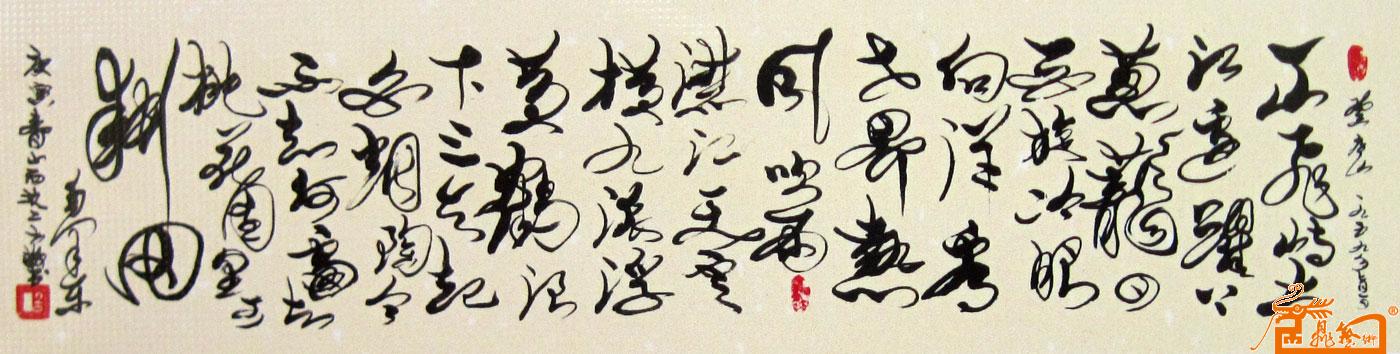 登庐山 一九五九年七月一日
一山飛峙大
江邊躍上
葱蘢四
百旋冷眼
向洋看
世界熱
風吹雨
灑江天雲
橫九派浮
黄鶴浪
下三吴起
白烟陶令
不知何處去
桃花源里可
耕田
毛泽东
庚寅